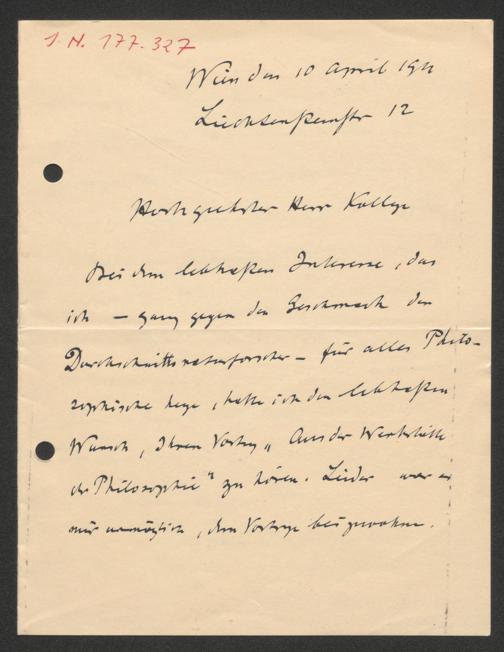 I. N. 177.327
Wien den 10 April 1911
Liechtensteinstr 12
Hochgeehrter Herr Kollege
Bei dem lebhaften Interesse, das
ich – ganz gegen den Geschmack der
Durchschnittsnaturforscher – für alles Philo-
sophische hege, hatte ich den lebhaften
Wunsch, Ihren Vortrag „Aus der Werkstätte
der Philosophie" zu hören. Leider war es
mir unmöglich, dem Vortrage beizuwohnen.